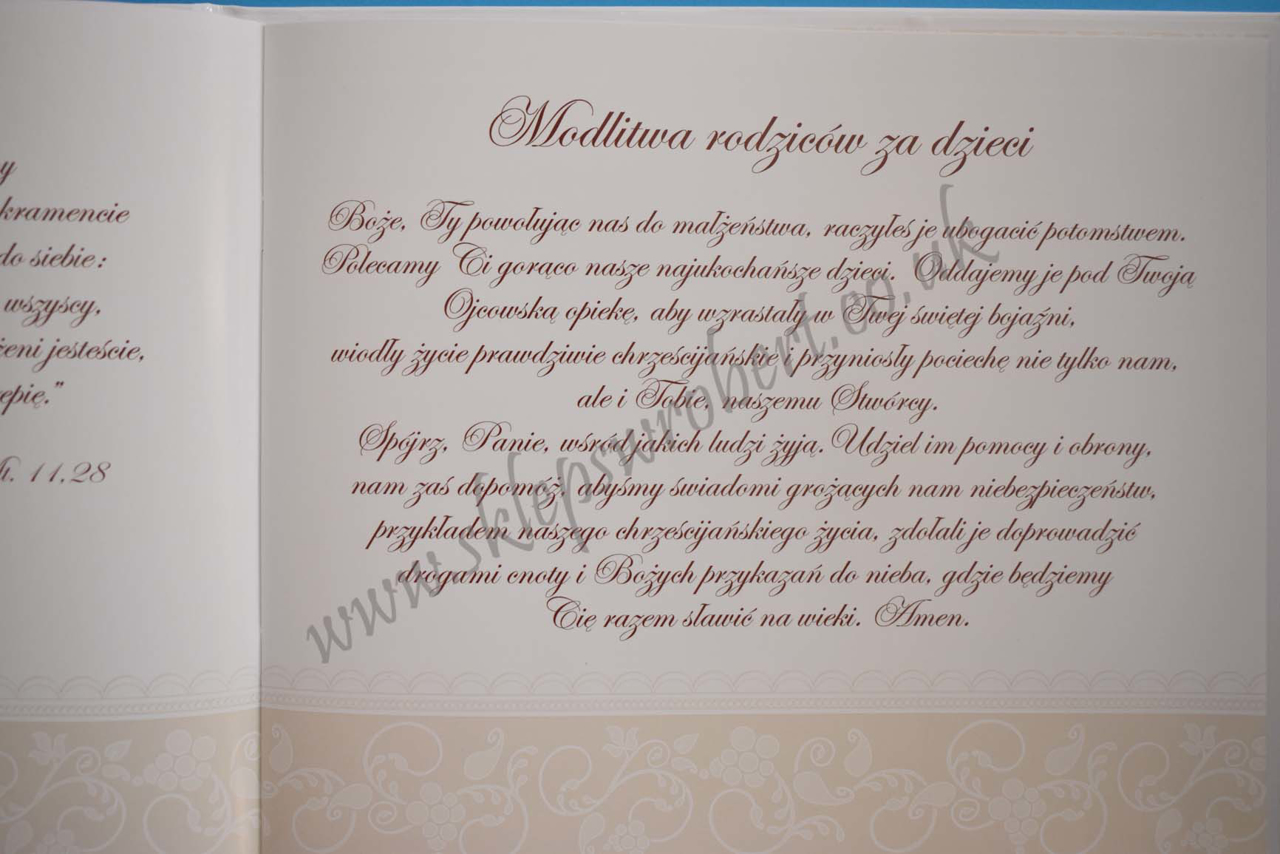 y
kramencie
do siebie:
wszyscy,
żeni jesteście,
epię."
t. 11,28
Modlitwa rodziców za dzieci
Boże, Ty powołując nas do małżeństwa, raczyłeś je ubogacić potomstwem.
Polecamy Ci gorąco nasze najukochańsze dzieci. Oddajemy je pod Twoją
Ojcowską opiekę, aby wzrastały w Twej świętej bojaźni,
wiodły życie prawdziwie chrześcijańskie i przyniosły pociechę nie tylko nam,
ale i Tobie, naszemu Stwórcy.
Spójrz, Panie, wśród jakich ludzi żyją. Udziel im pomocy i obrony,
nam zaś dopomóż, abyśmy świadomi grożących nam niebezpieczeństw,
przykładem naszego chrześcijańskiego życia, zdołali je doprowadzić
drogami cnoty i Bożych przykazań do nieba, gdzie będziemy
Cię razem sławić na wieki. Amen.
www.sklepswrobert.co.uk